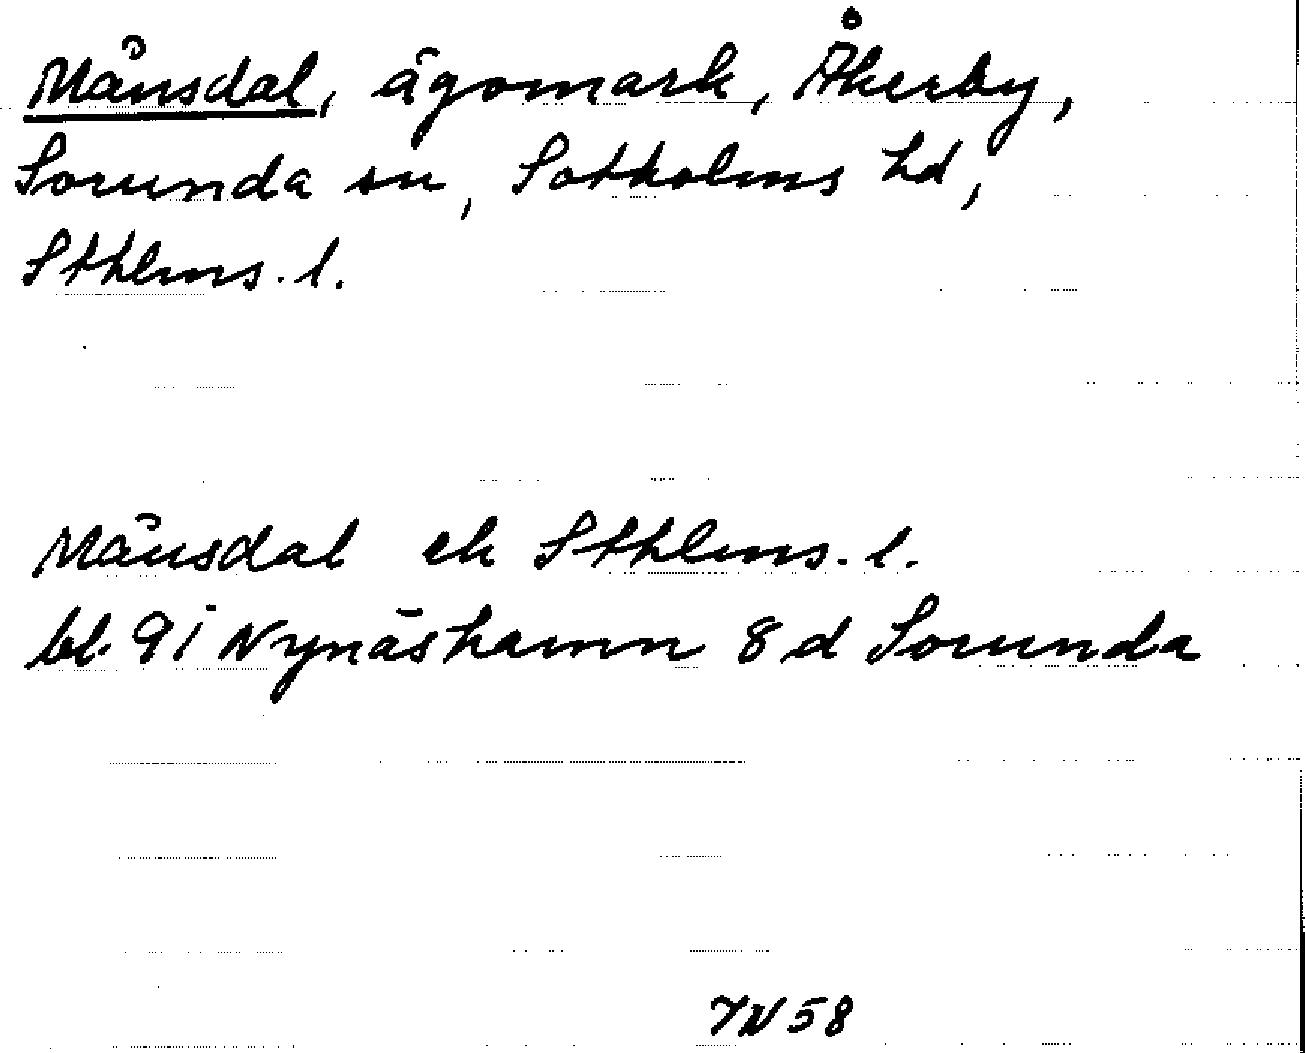 Månsdal, ägomark, Åkerby,
Sorunda sn, Sotholms hd,
Sthlms. l.
Månsdal ek Sthlms. l.
bl. 9i Nynäshamn 8d Sorunda
7N58